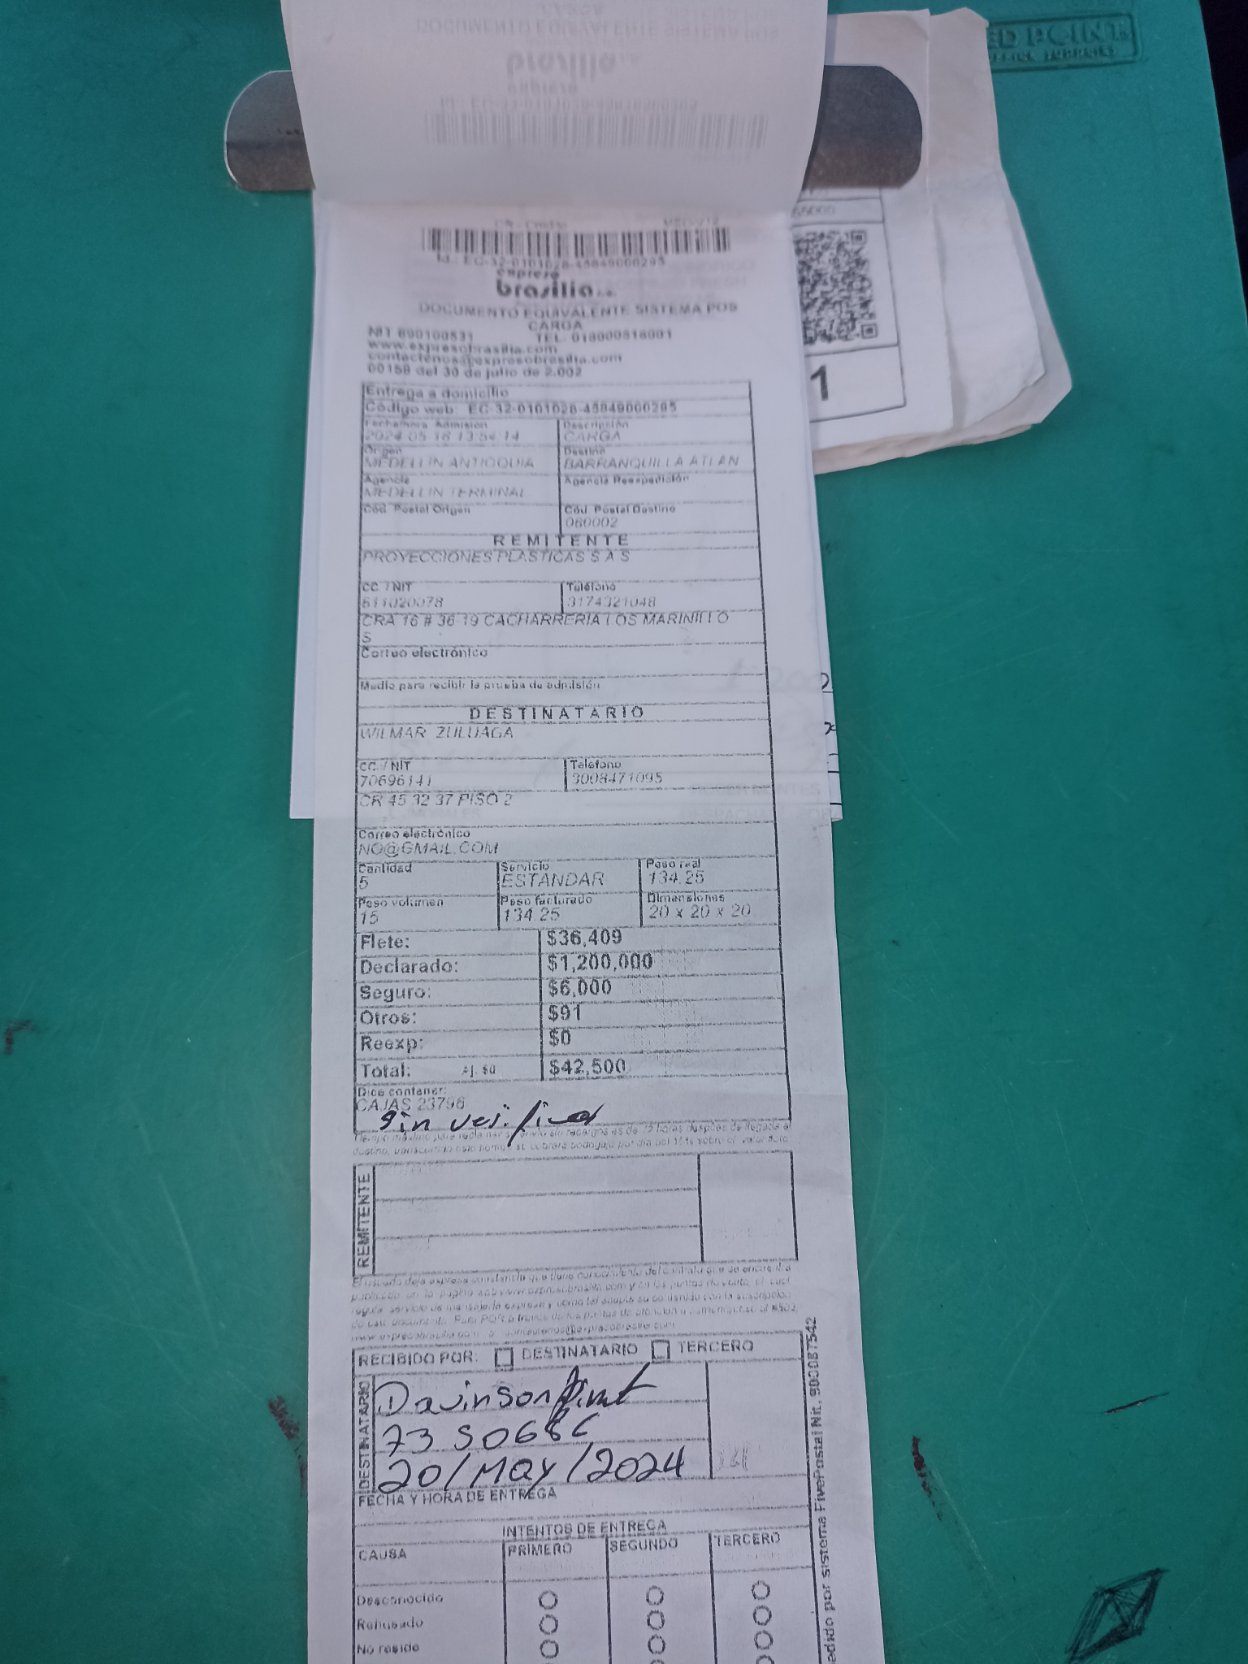 ED POINT
brasilia
Id : EC-32-0101028-45849000295
expreso
brasilia
DOCUMENTO EQUIVALENTE SISTEMA POS
CARGA
NIT 890100531 TEL. 018000518001
www.expresobrasilia.com
contactenos@expresobrasilia.com
00158 del 30 de julio de 2.002
1
Entrega a domicilio
Código web: EC-32-0101028-45849000295
Fecha/Hora Admision Descripción
2024-05-16 13:54:14 CARGA
Origen Destino
MEDELLIN ANTIOQUIA BARRANQUILLA ATLAN
Agencia Agencia Reexpedición
MEDELLIN TERMINAL
Cód. Postal Origen Cód. Postal Destino
080002
REMITENTE
PROYECCIONES PLASTICAS S A S
CC / NIT Teléfono
811020078 3174321048
CRA 16 # 36 19 CACHARRERIA LOS MARINILLO
S
Correo electrónico
Medio para recibir la prueba de admisión
DESTINATARIO
WILMAR ZULUAGA
CC / NIT Teléfono
70696141 3008471095
CR 45 32 37 PISO 2
Correo electrónico
NO@GMAIL.COM
Cantidad Servicio Peso real
5 ESTANDAR 134.25
Peso volumen Peso facturado Dimensiones
15 134.25 20 x 20 x 20
Flete: $36,409
Declarado: $1,200,000
Seguro: $6,000
Otros: $91
Reexp: $0
Total: Aj. $0 $42,500
Dice contener:
CAJAS 23796
Sin verificar
REMITENTE
RECIBIDO POR: DESTINATARIO TERCERO
DESTINATARIO
Davinson
20/May/2024
FECHA Y HORA DE ENTREGA
INTENTOS DE ENTREGA
CAUSA PRIMERO SEGUNDO TERCERO
Desconocido
Rehusado
No reside
edido por sistema FivePostal Nit. 900087542